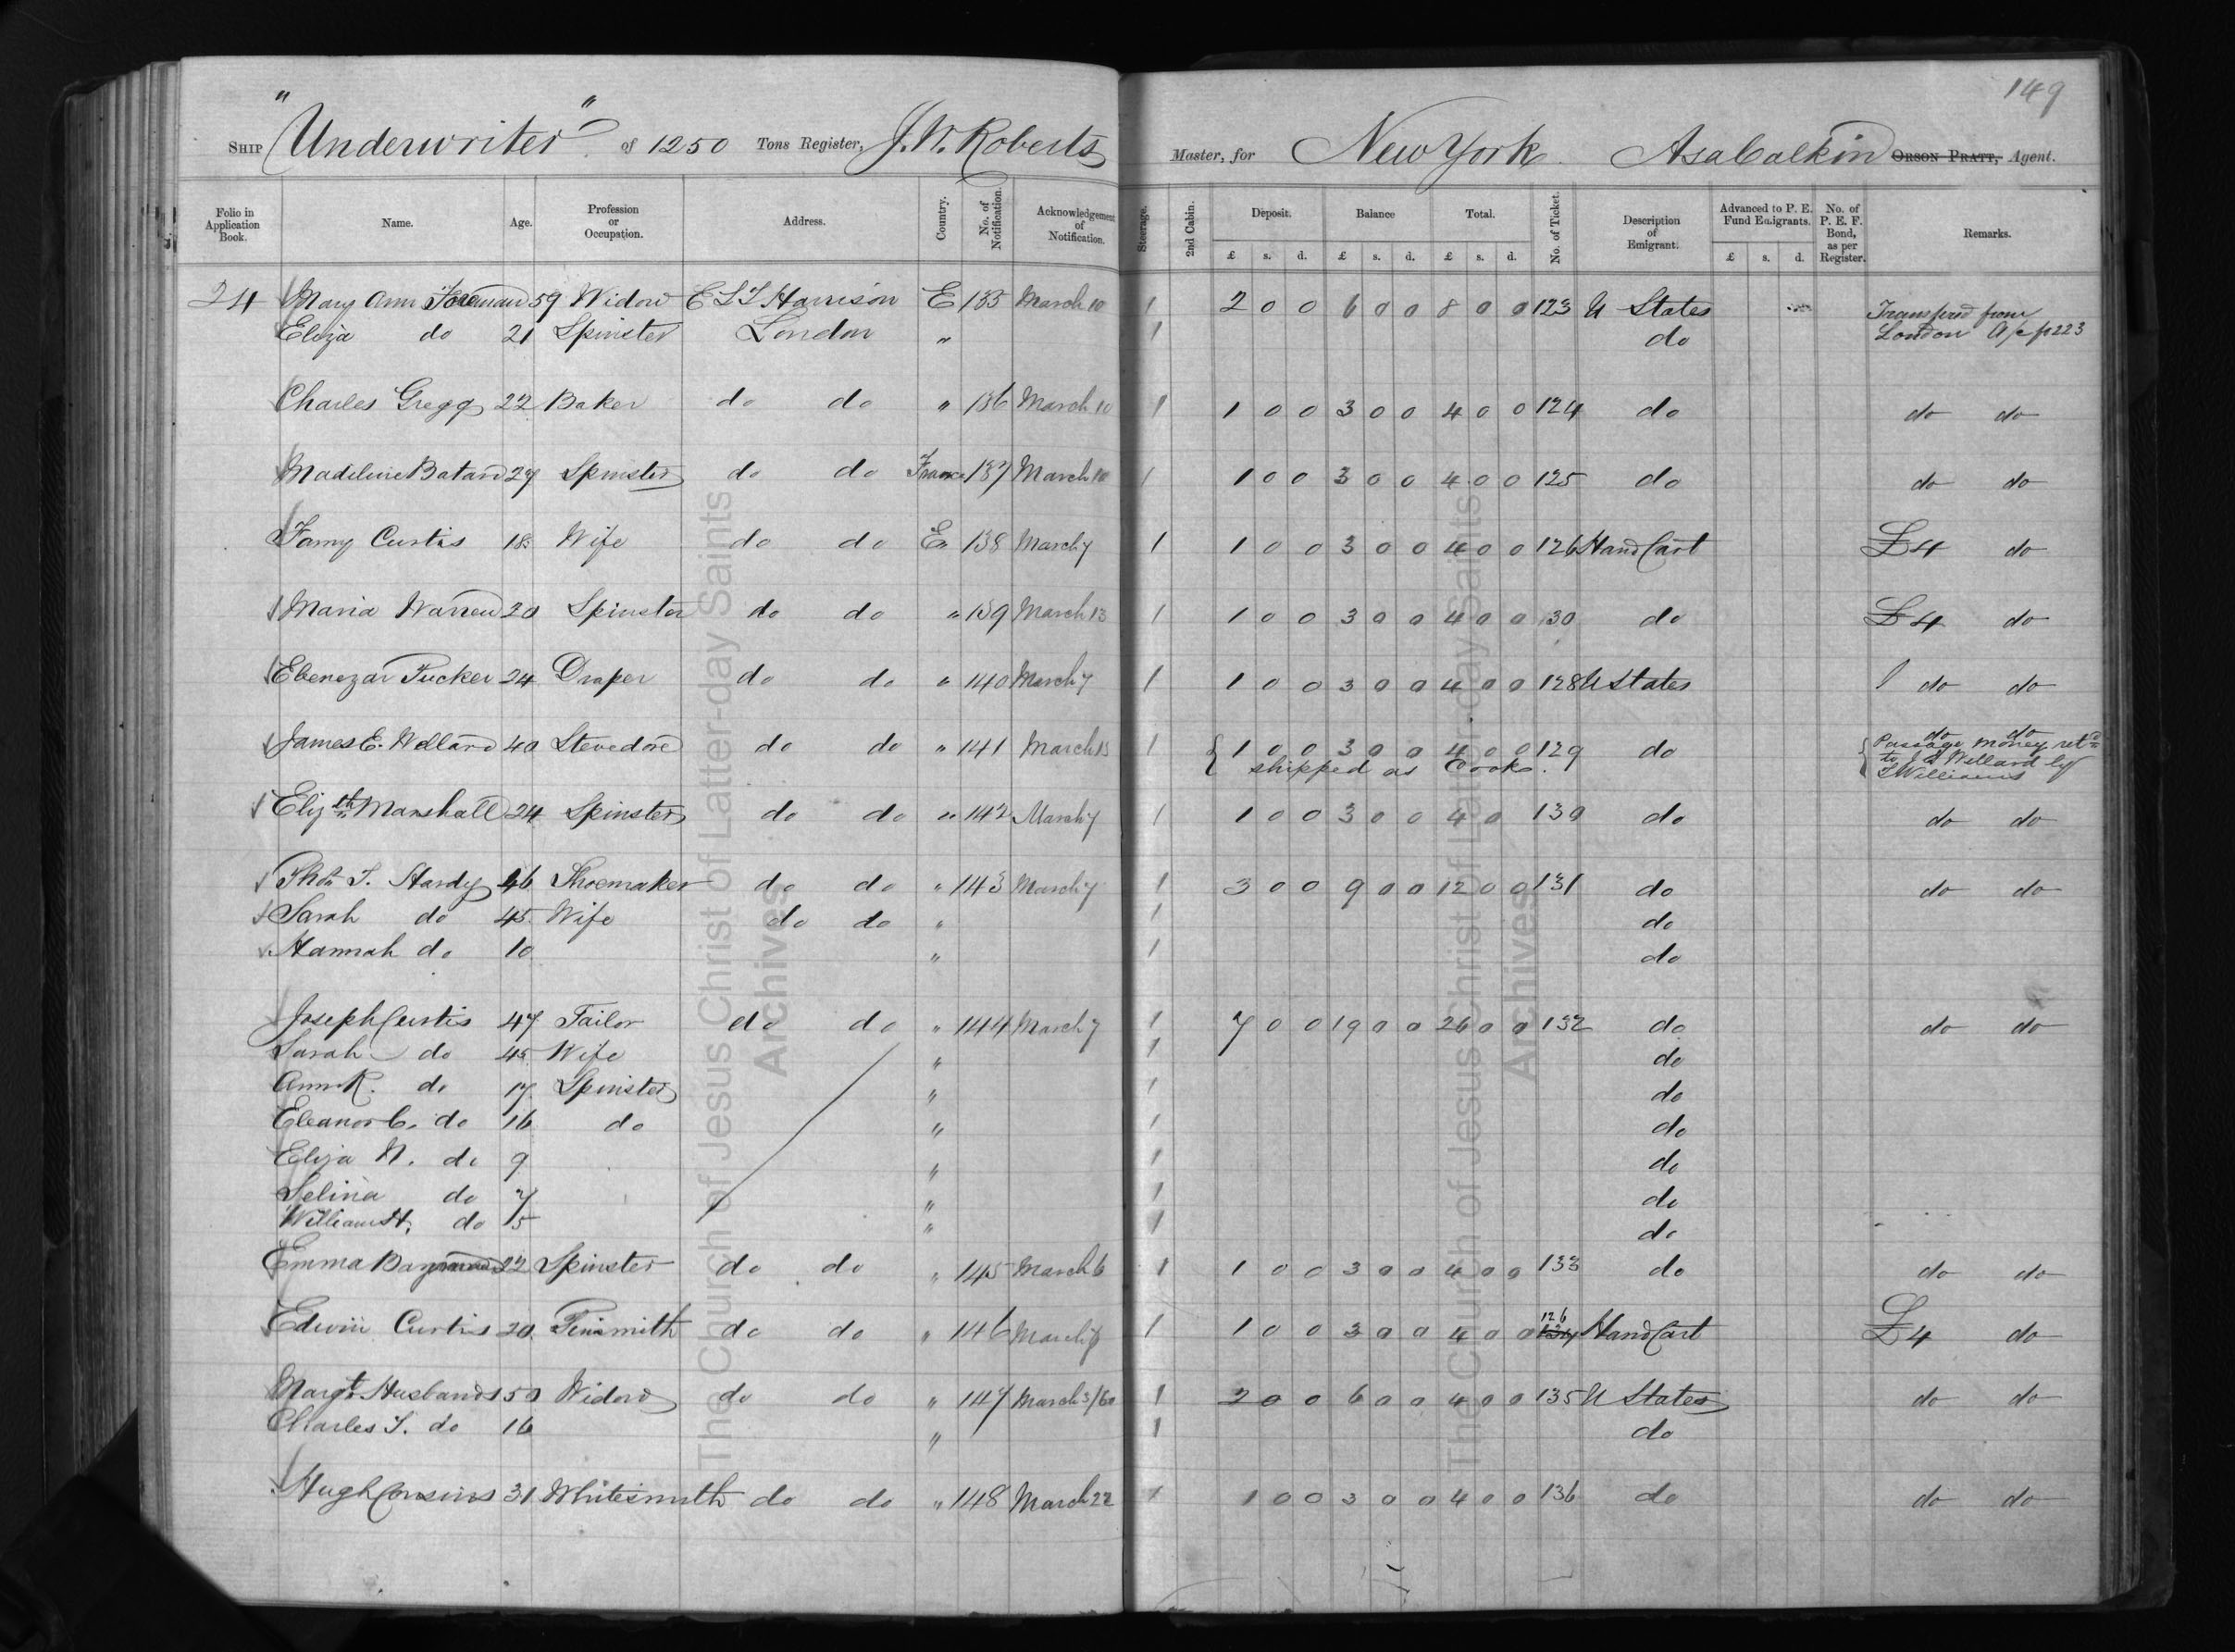 149
Ship "Underwriter" of 1250 Tons Register, J. W. Roberts Master, for New York. Asa Calkin Orson Pratt, Agent.
Folio in Application Book. Name. Age. Profession or Occupation. Address. Country. No. of Notification. Acknowledgement of Notification. Steerage. 2nd Cabin. Deposit. Balance Total. No. of Ticket. Description of Emigrant. Advanced to P. E. Fund Emigrants. No. of P. E. F. Bond, as per Register. Remarks.
£ s. d. £ s. d. £ s. d. £ s. d.
24 Mary Ann Foreman 59 Widow E L T Harrison E 135 March 10 1 2 0 0 6 0 0 8 0 0 123 U States Transferd from
Eliza do 21 Spinster London " 1 do London A/c p 223
Charles Gregg 22 Baker do do " 136 March 10 1 1 0 0 3 0 0 4 0 0 124 do do do
Madeline Batard 27 Spinster do do France 137 March 10 1 1 0 0 3 0 0 4 0 0 125 do do do
Fanny Curtis 18 Wife do do E 138 March 7 1 1 0 0 3 0 0 4 0 0 126 Hand Cart £4 do
Maria Warren 20 Spinster do do " 139 March 13 1 1 0 0 3 0 0 4 0 0 30 do £4 do
Ebenezar Tucker 24 Draper do do " 140 March 7 1 1 0 0 3 0 0 4 0 0 128 U States do do
James E. Wellard 40 Stevedore do do " 141 March 13 1 1 0 0 3 0 0 4 0 0 129 do do do
shipped as Cook. Passage money retd to J E Wellard by T Williams
Elizth Marshall 24 Spinster do do " 142 March 7 1 1 0 0 3 0 0 4 0 130 do do do
Thos T. Hardy 46 Shoemaker do do " 143 March 7 1 3 0 0 9 0 0 12 0 0 131 do do do
Sarah do 45 Wife do do " 1 do
Hannah do 10 " 1 do
Joseph Curtis 47 Tailor do do " 144 March 7 1 7 0 0 19 0 0 26 0 0 132 do do do
Sarah do 45 Wife " 1 do
Ann R. do 17 Spinster " 1 do
Eleanor C. do 16 do " 1 do
Eliza N. do 9 " 1 do
Selina do 7 " 1 do
William H. do 5 " 1 do
Emma 22 Spinster do do " 145 March 6 1 1 0 0 3 0 0 4 0 0 133 do do do
Edwin Curtis 20 Tinsmith do do " 146 March 1 1 0 0 3 0 0 4 0 0 126 134 Hand Cart £4 do
Margt Husbands 50 Widow do do " 147 March 3/60 1 2 0 0 6 0 0 4 0 0 135 U States do do
Charles S. do 16 " 1 do
Hugh Cousins 31 Whitesmith do do " 148 March 22 1 1 0 0 3 0 0 4 0 0 136 do do do
The Church of Jesus Christ of Latter-day Saints
Archives
The Church of Jesus Christ of Latter-day Saints
Archives